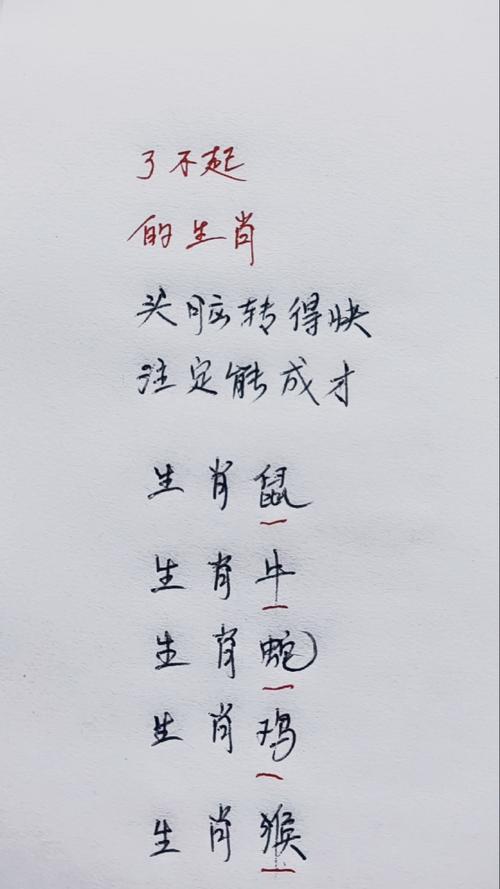 了不起
的生肖
头脑转得快
注定能成才
生肖鼠
生肖牛
生肖蛇
生肖鸡
生肖猴